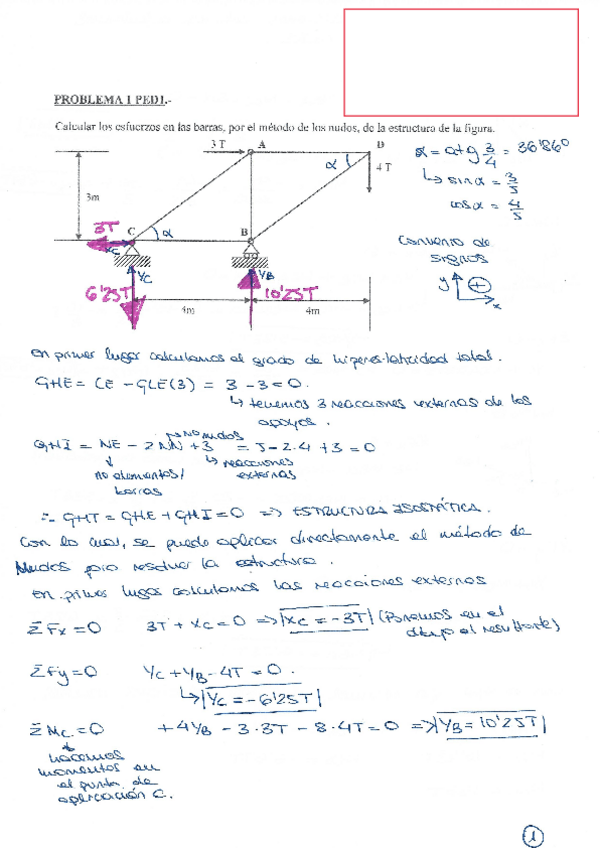 PROBLEMA 1 PED1.-
Calcular los esfuerzos en las barras, por el método de los nudos, de la estructura de la figura.
3 T A D
α
4 T
3m
3T
C α B
Xc
Yc YB
6'25T 10'25T
4m 4m
α = atg 3/4 = 36'86º
↳ sinα = 3/5
cosα = 4/5
Convenio de
signos
y + x
En primer lugar calculamos el grado de hiperestaticidad total.
GHE = CE - GLE(3) = 3 - 3 = 0.
↳ tenemos 3 reacciones externas de los
apoyos.
nº nudos
GHI = NE - 2NN + 3 = 5 - 2·4 + 3 = 0
↳ reacciones
externas
nº elementos/
barras
∴ GHT = GHE + GHI = 0 => ESTRUCTURA ISOSTÁTICA.
Con lo cual, se puede aplicar directamente el método de
Nudos para resolver la estructura.
En primer lugar calculamos las reacciones externas
ΣFx = 0 3T + Xc = 0 => |Xc = -3T| (Ponemos en el
dibujo el resultante)
ΣFy = 0 Yc + YB - 4T = 0.
↳ |Yc = -6'25T|
ΣMc = 0 + 4YB - 3·3T - 8·4T = 0 => |YB = 10'25T|
hacemos
momentos en
el punto de
aplicación C.
1